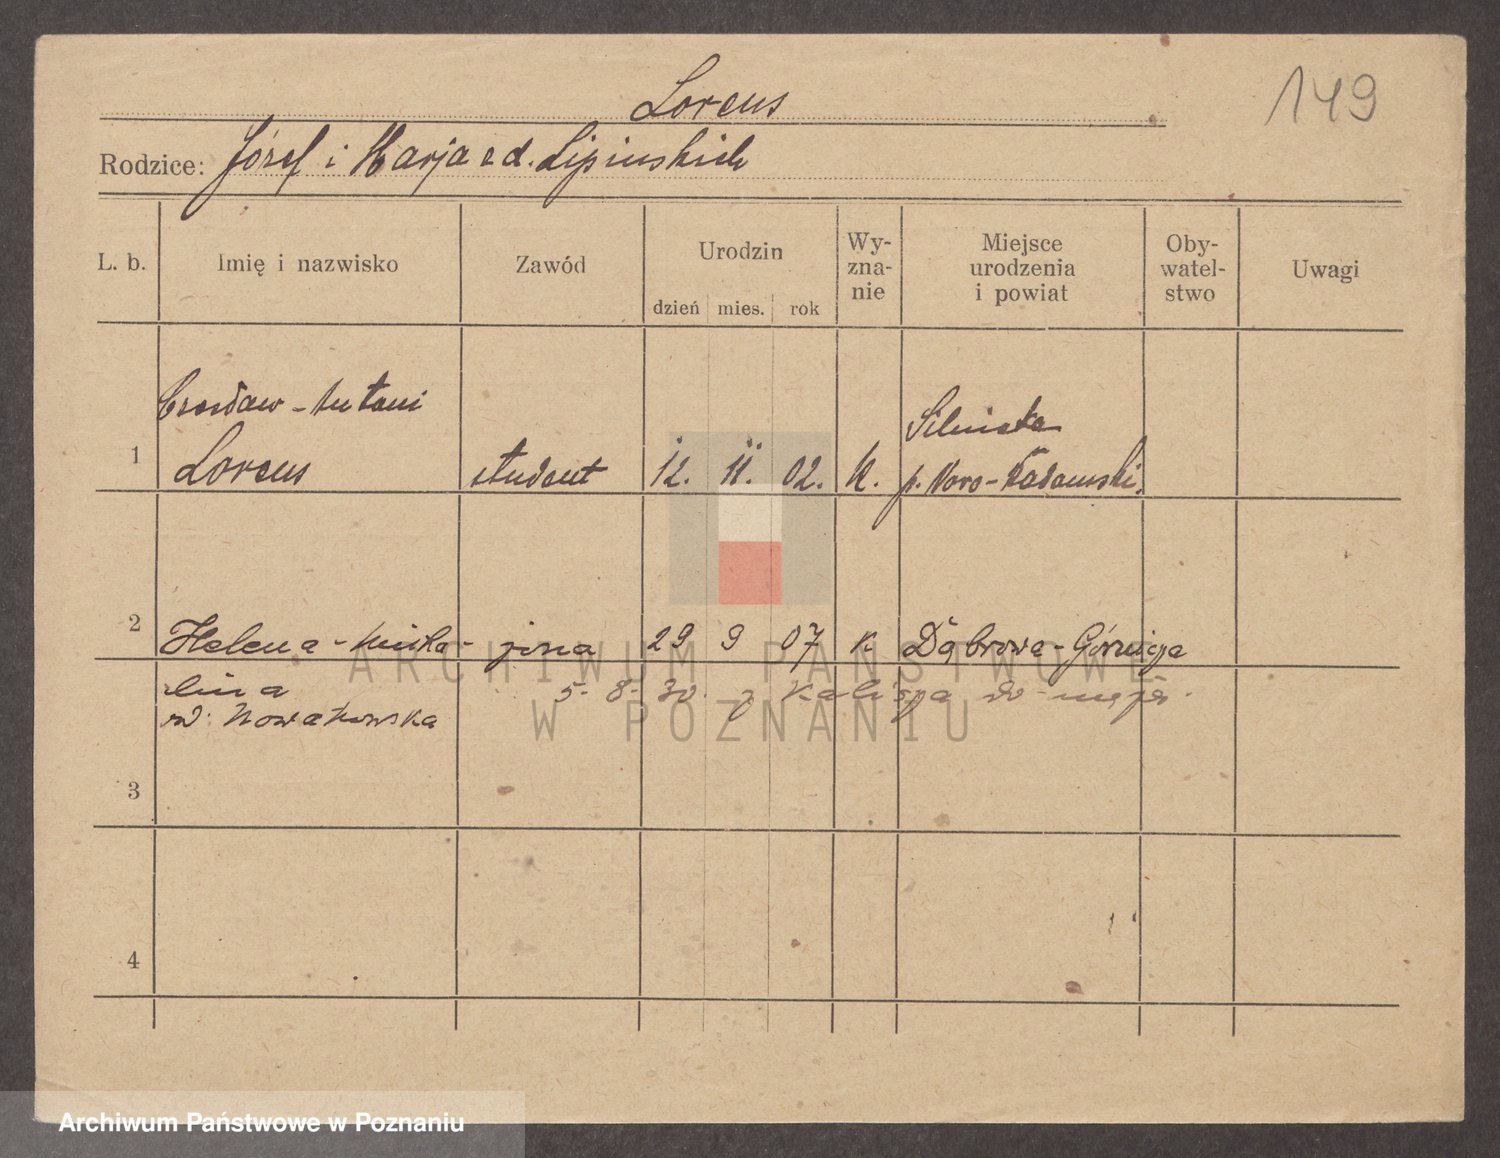 149
Lorens
Rodzice: Józef i Marja z d. Lipinskich
L. b. Imię i nazwisko Zawód Urodzin Wy-zna-nie Miejsce urodzenia i powiat Oby-watel-stwo Uwagi
dzień mies. rok
Czesław-Antoni
1 Lorens student 12. 11. 02. k. p. Novo-Radomski.
2 Helena-Micha- żona 29 9 07 k Dąbrowa-Górnicza
lina 5. 8. 30. z Kalisza do męża.
w: Nowakowska
3
4
ARCHIWUM PAŃSTWOWE
W POZNANIU
Archiwum Państwowe w Poznaniu